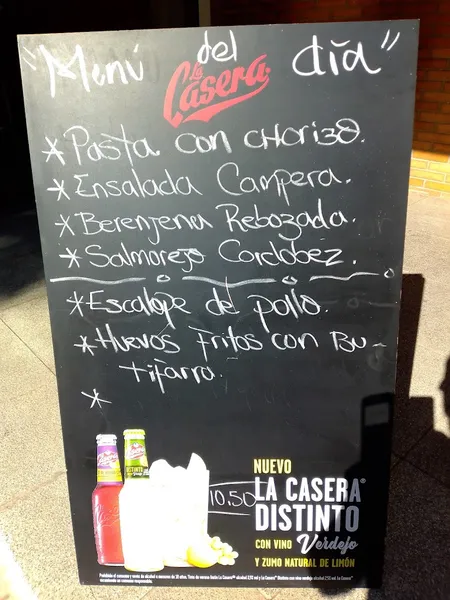 "Menú del día"
La Casera
* Pasta con CHORIZO.
* Ensalada Campera.
* Berenjena Rebozada.
* Salmorejo Cordobez.
* Escalope de pollo.
* Huevos Fritos con Bu-
tifarra.
*
10.50
NUEVO
LA CASERA®
DISTINTO
CON VINO Verdejo
Y ZUMO NATURAL DE LIMÓN